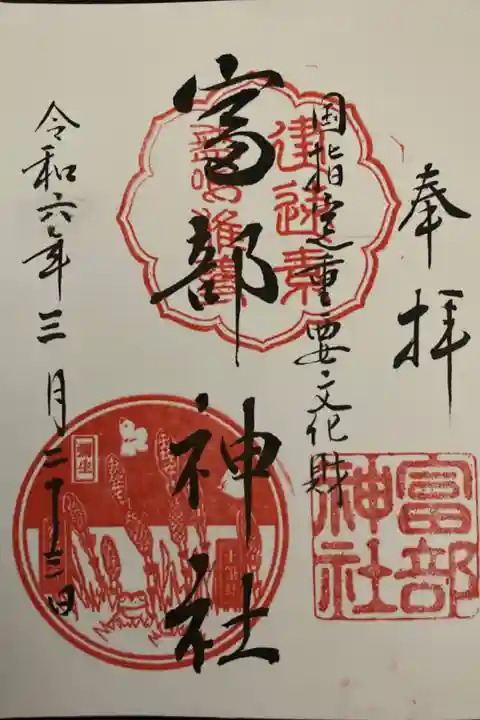 奉拝
国指定重要文化財
富部神社
令和六年三月二十三日
建速素
富部
神社
弥生